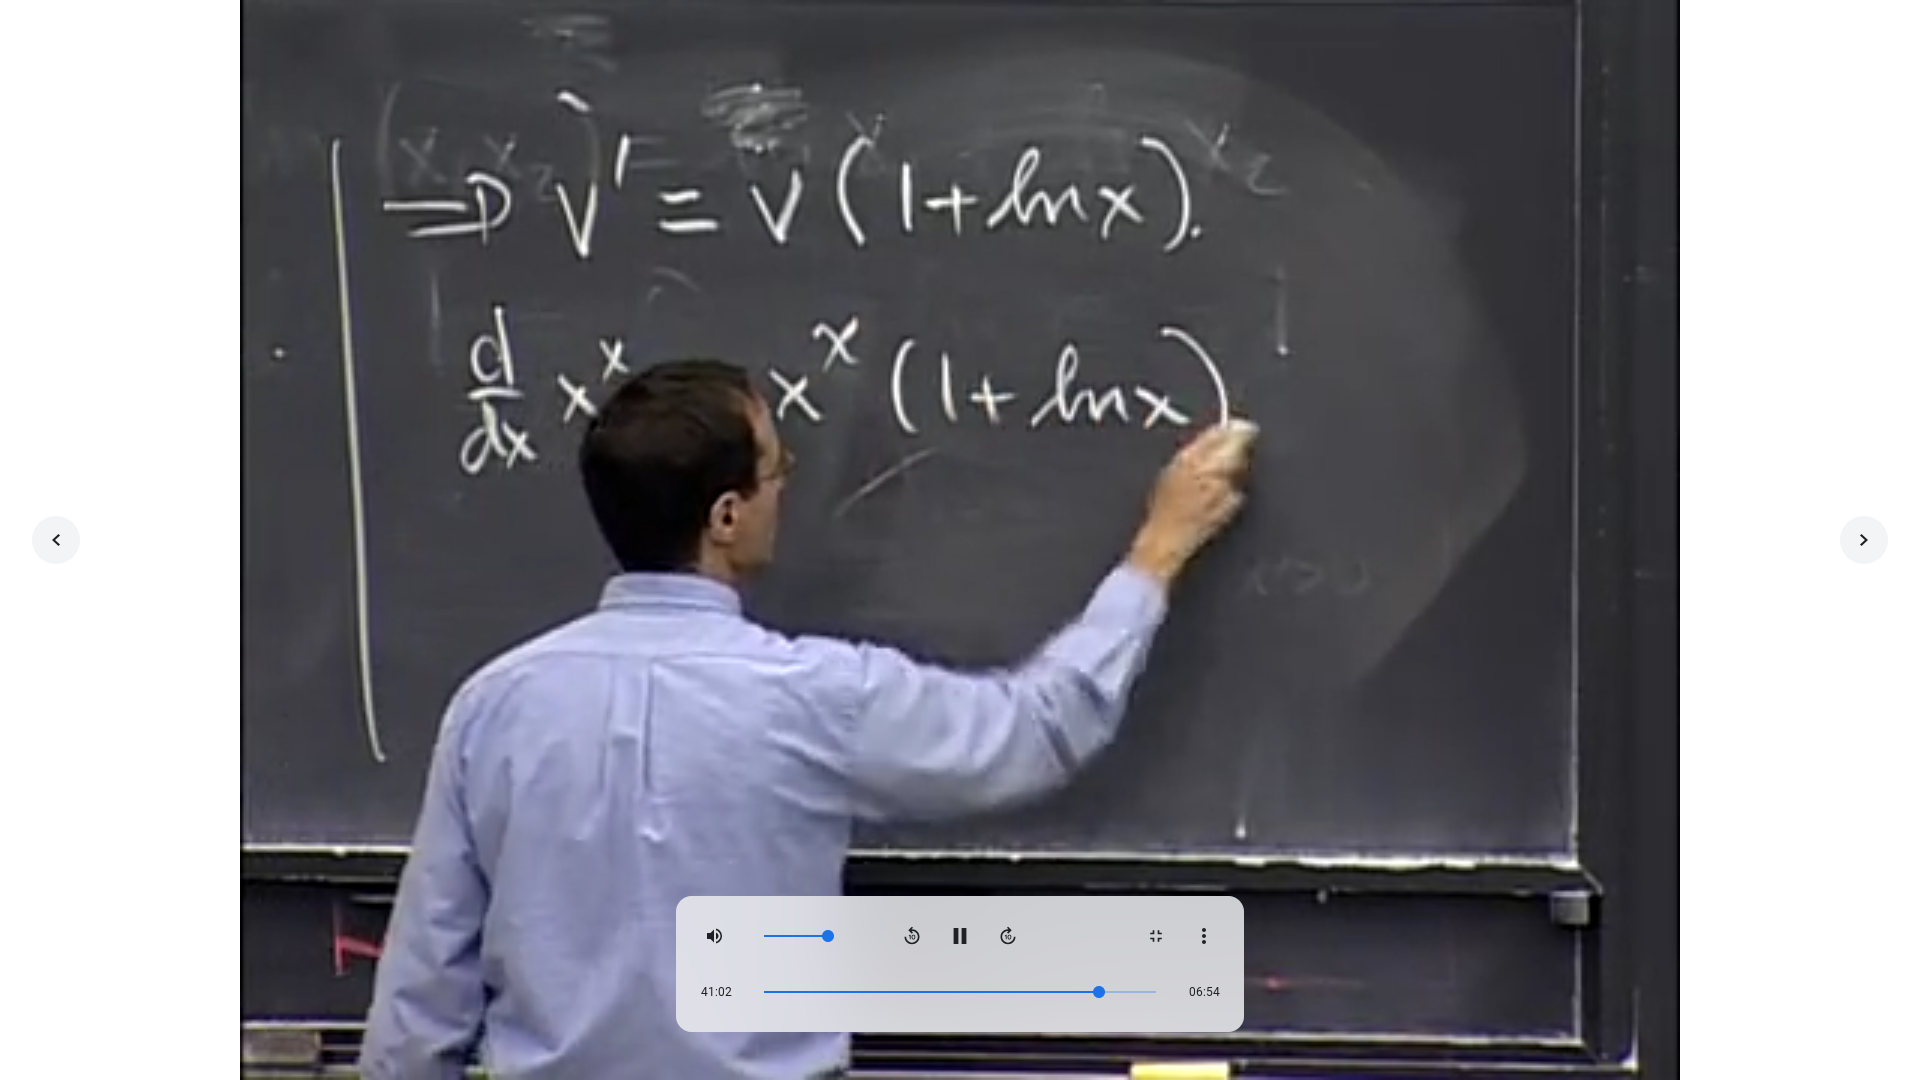 ⇒ v' = v(1+lnx).
d/dx x^x x^x (1+lnx)
41:02 06:54